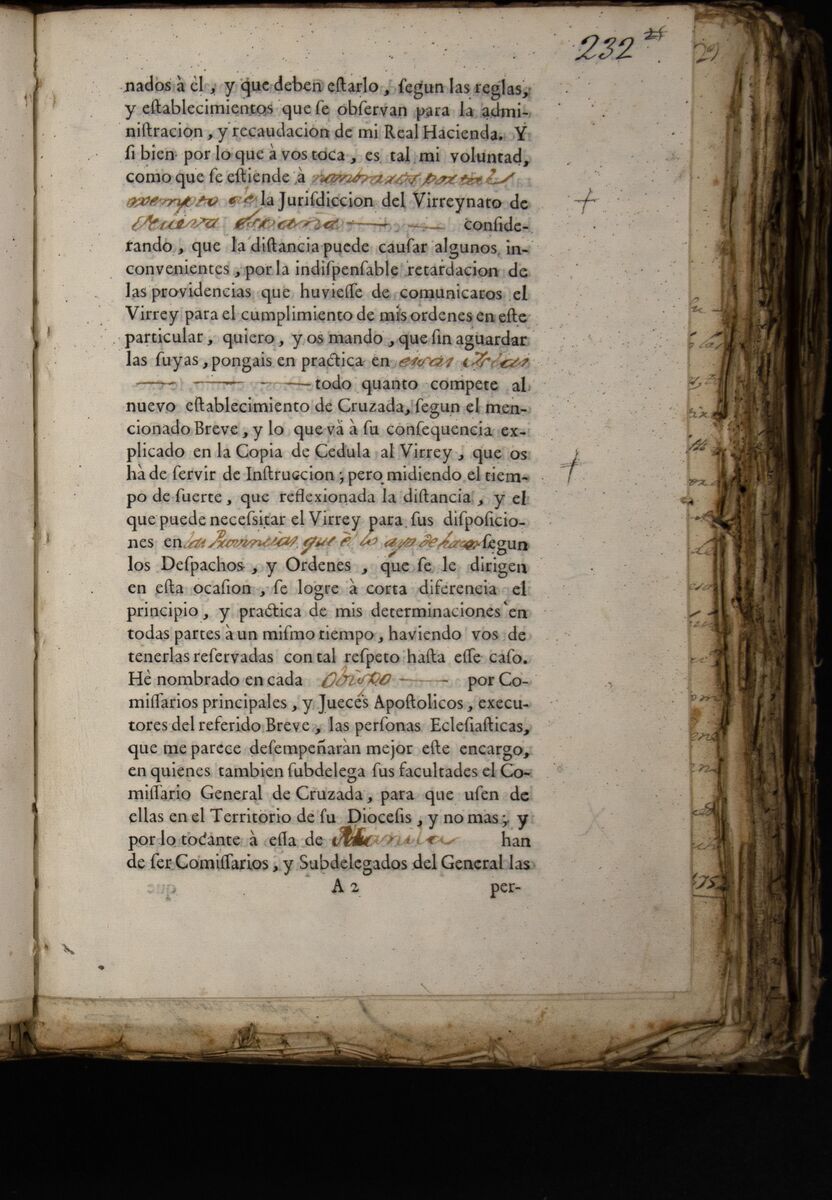 232 28
nados à èl, y que deben eſtarlo, ſegun las reglas,
y eſtablecimientos que ſe obſervan para la admi-
niſtracion, y recaudacion de mi Real Hacienda. Y
ſi bien por lo que à vos toca, es tal mi voluntad,
como que ſe eſtiende à nombraros por tal
exempto de la Juriſdiccion del Virreynato de
Nueva España conſide-
rando, que la diſtancia puede cauſar algunos in-
convenientes, por la indiſpenſable retardacion de
las providencias que huvieſſe de comunicaros el
Virrey para el cumplimiento de mis ordenes en eſte
particular, quiero, y os mando, que ſin aguardar
las ſuyas, pongais en practica en esas Islas
todo quanto compete al
nuevo eſtablecimiento de Cruzada, ſegun el men-
cionado Breve, y lo que và à ſu conſequencia ex-
plicado en la Copia de Cedula al Virrey, que os
hà de ſervir de Inſtruccion; pero midiendo el tiem-
po de ſuerte, que reflexionada la diſtancia, y el
que puede neceſsitar el Virrey para ſus diſpoſicio-
nes en las Provincias que è lo aya de hacer ſegun
los Deſpachos, y Ordenes, que ſe le dirigen
en eſta ocaſion, ſe logre à corta diferencia el
principio, y practica de mis determinaciones en
todas partes à un miſmo tiempo, haviendo vos de
tenerlas reſervadas con tal reſpeto haſta eſſe caſo.
Hè nombrado en cada Obispo por Co-
miſſarios principales, y Jueces Apoſtolicos, execu-
tores del referido Breve, las perſonas Ecleſiaſticas,
que me parece deſempeñaràn mejor eſte encargo,
en quienes tambien ſubdelega ſus facultades el Co-
miſſario General de Cruzada, para que uſen de
ellas en el Territorio de ſu Dioceſis, y no mas; y
por lo tocante à eſſa de Manila han
de ſer Comiſſarios, y Subdelegados del General las
A 2 per-